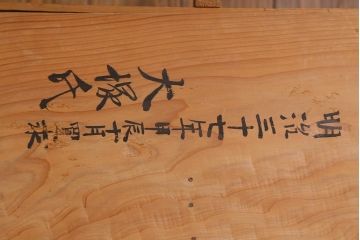 明治三十七年甲辰十月買求
大塚氏